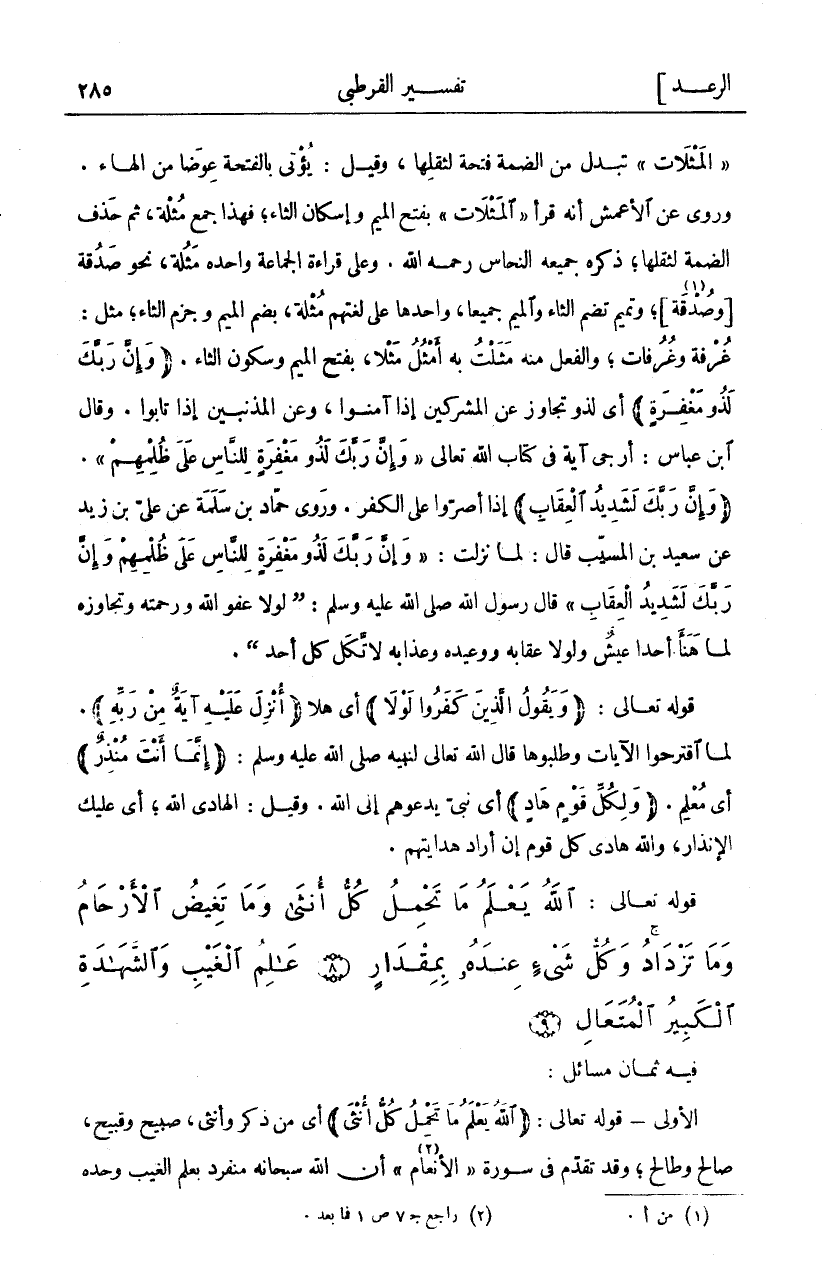 الرعــد ] تفســير القرطبى ٢٨٥
« الْمَثْلَات » تبــدل من الضمة فتحة لثقلها ، وقيــل : يُؤْتى بالفتحة عِوَضا من الهــاء .
وروى عن الأعمش أنه قرأ « الْمَثْلات » بفتح الميم وإسكان الثاء؛ فهذا جمع مُثْلة، ثم حَذف
الضمة لثقلها؛ ذكره جميعه النحاس رحمــه الله . وعلى قراءة الجماعة واحده مَثُلة، نحو صَدُقة
[وصُدْقة](١)؛ وتميم تضم الثاء والميم جميعا، واحدها على لغتهم مُثْلة، بضم الميم وجزم الثاء؛ مثل :
غُرْفة وغُرُفات ؛ والفعل منه مَثَلْتُ به أَمْثُلُ مَثْلا، بفتح الميم وسكون الثاء . ﴿ وَإِنَّ رَبَّكَ
لَذُو مَغْفِــرَةٍ ﴾ أى لذو تجاوز عن المشركين إذا آمنــوا ، وعن المذنبــين إذا تابوا . وقال
ابن عباس : أرجى آية فى كتاب الله تعالى « وَإِنَّ رَبَّكَ لَذُو مَغْفِرَةٍ لِلنَّاسِ عَلَى ظُلْمِهِــمْ » .
﴿ وَإِنَّ رَبَّكَ لَشَدِيدُ الْعِقَابِ ﴾ إذا أصرّوا على الكفر . ورَوى حمّاد بن سَلَمَة عن علىّ بن زيد
عن سعيد بن المسيّب قال : لمــا نزلت : « وَإِنَّ رَبَّكَ لَذُو مَغْفِرَةٍ لِلنَّاسِ عَلَى ظُلْمِــهِمْ وَإِنَّ
رَبَّكَ لَشَدِيدُ الْعِقَابِ » قال رسول الله صلى الله عليه وسلم : ” لولا عفو الله ورحمته وتجاوزه
لمــا هَنَأَ أحدا عيشٌ ولولا عقابه ووعيده وعذابه لاتّكل كل أحد “ .
قوله تعــالى : ﴿ وَيَقُولُ الَّذِينَ كَفَرُوا لَوْلَا ﴾ أى هلا ﴿ أُنْزِلَ عَلَيْــهِ آيَةٌ مِنْ رَبِّهِ ﴾ .
لمــا اقترحوا الآيات وطلبوها قال الله تعالى لنبيه صلى الله عليه وسلم : ﴿ إِنَّمَــا أَنْتَ مُنْذِرٌ ﴾
أى مُعْلِم . ﴿ وَلِكُلِّ قَوْمٍ هَادٍ ﴾ أى نبىّ يدعوهم إلى الله . وقيــل : الهادى الله ؛ أى عليك
الإنذار، والله هادى كل قوم إن أراد هدايتهم .
قوله تعــالى : ٱللَّهُ يَعْــلَمُ مَا تَحْمِــلُ كُلُّ أُنثَىٰ وَمَا تَغِيضُ ٱلْأَرْحَامُ
وَمَا تَزْدَادُۚ وَكُلُّ شَىْءٍ عِندَهُۥ بِمِقْدَارٍ ﴿٨﴾ عَـٰلِمُ ٱلْغَيْبِ وَٱلشَّهَـٰدَةِ
ٱلْكَبِيرُ ٱلْمُتَعَالِ ﴿٩﴾
فيــه ثمــان مسائل :
الأولى – قوله تعالى : ﴿ ٱللَّهُ يَعْلَمُ مَا تَحْمِلُ كُلُّ أُنْثَى ﴾ أى من ذكر وأنثى، صبيح وقبيح،
صالح وطالح ؛ وقد تقدّم فى ســورة « الأنعام »(٢) أنــ الله سبحانه منفرد بعلم الغيب وحده
(١) من أ . (٢) راجع جـ ٧ ص ١ فما بعد .